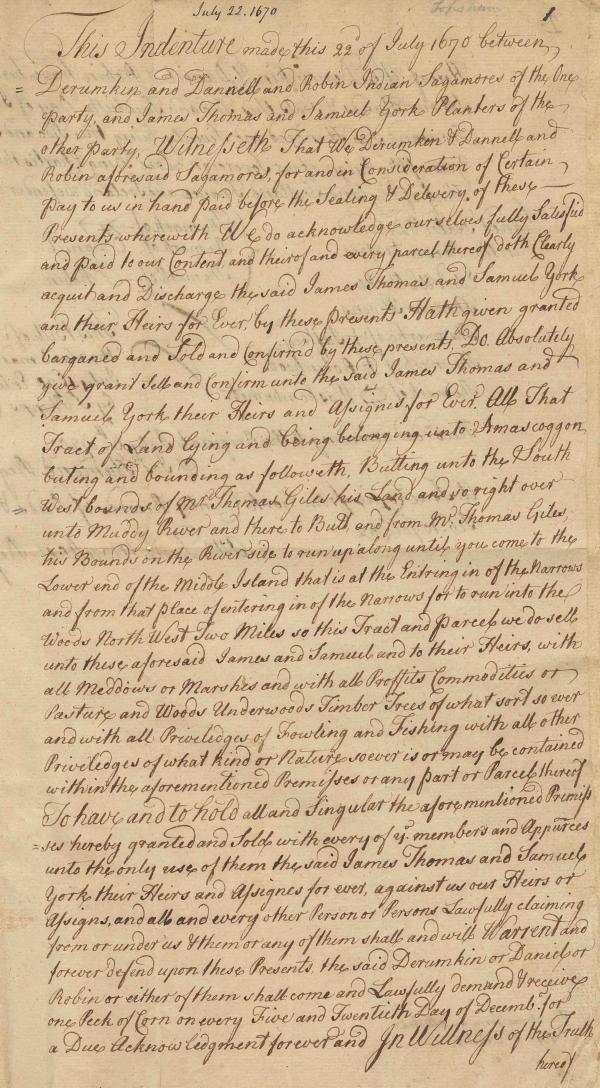 July 22. 1670
Topsham
1
This Indenture made this 22d of July 1670 between
= Derumkin and Dannell and Robin Indian Sagamores of the One
party, and James Thomas and Samuel York Planters of the
other party, Witnesseth That We Derumkin & Dannell and
Robin aforesaid Sagamores, for and in Consideration of Certain
pay to us in hand paid before the Sealing & Delivery of these
Presents wherewith We do acknowledge ourselves fully Satisfied
and paid to our Content and theirof and every parcel thereof doth Clearly
acquit and Discharge the said James Thomas and Samuel York
and their Heirs for Ever, by these presents Hath given granted
barganed and Sold and Confirm'd by these presents, Do Absolutely
give grant Sell and Confirm unto the said James Thomas and
Samuel York their Heirs and Assignes for Ever, All That
Tract of Land lying and being belonging unto Amascoggon
buting and bounding as followeth, Butting unto the South
= West bounds of Mr. Thomas Giles his Land and so right over
unto Muddy River and there to Butt and from Mr. Thomas Giles,
his Bounds on the River side to run up along until you come to the
Lower end of the Middle Island that is at the Entring in of the Narrows
and from that place of entering in of the Narrows for to run into the
Woods North West Two Miles so this Tract and Parcel we do sell
unto these aforesaid James and Samuel and to their Heirs, with
all Meddows or Marshes and with all Proffits Commodities or
Pasture and Woods Underwoods Timber Trees of what sort so ever
and with all Priviledges of Fowling and Fishing with all other
Priviledges of what kind or Nature soever is or may be contained
within the aforementioned Premisses or any part or Parcel thereof
To have and to hold all and Singular the aforementioned Premiss
= ses hereby granted and Sold with every of yr. members and Appurces
unto the only use of them the said James Thomas and Samuel
York their Heirs and Assignes for ever, against us our Heirs or
Assigns, and all and every other Person or Persons Lawfully claiming
from or under us & them or any of them shall and will Warrent and
forever defend upon these Presents, the said Derumkin or Daniel or
Robin or either of them shall come and Lawfully demand & receive
one Peck of Corn on every Five and Twentieth Day of Decemb. for
a Due Acknowledgment forever and In Wittness of the Truth
hereof